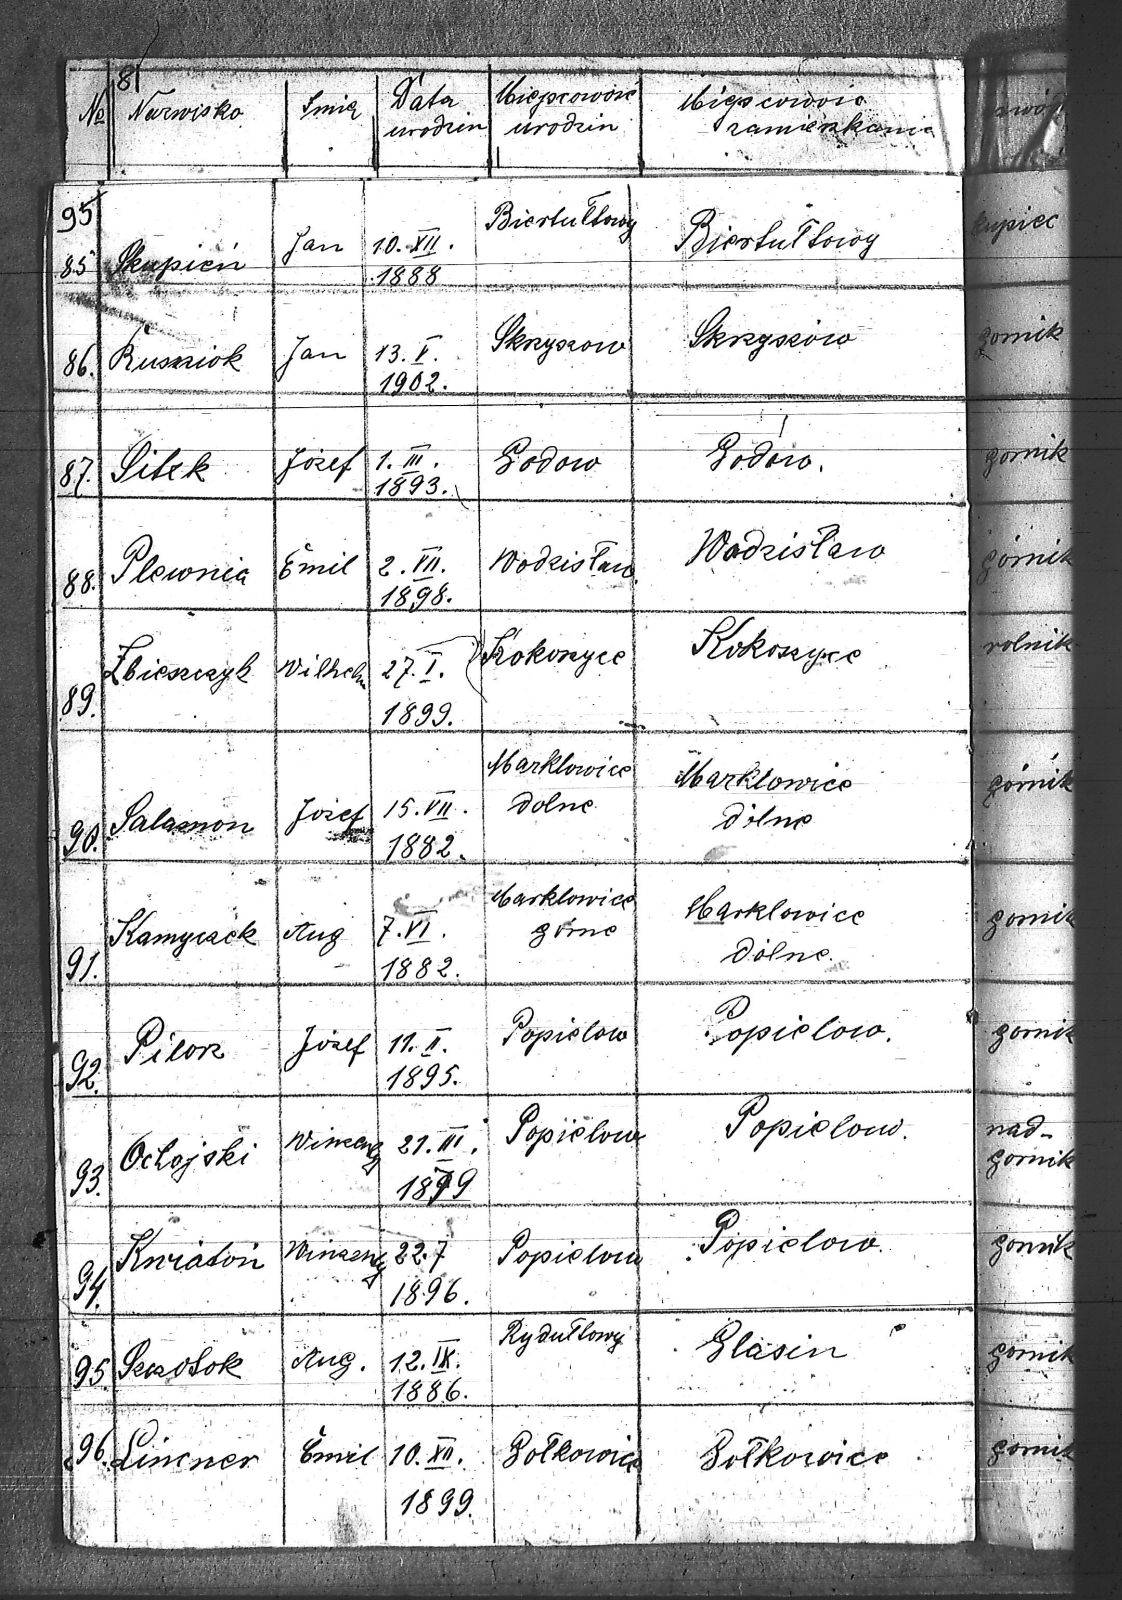 81
№ Nazwisko Imię Data urodzin Miejscowość urodzin Miejscowość zamieszkania
95
85 Skupień Jan 10. XII. 1888 Biertułtowy Biertułtowy kupiec
86. Rusziok Jan 13. V. 1902. Skrzyszow Skrzyszów gornik
87. Sitek Józef 1. III. 1893. Godow Godów. gornik
88. Plewnia Emil 2. VII. 1898. Wodzisław Wodzisław górnik
89. Zbieszczyk Wilhelm 27. I. 1899. Kokoszyce Kokoszyce rolnik
90. Salamon Józef 15. VII. 1882. Marklowice dolne Marklowice dólne górnik
91. Kamyczek Aug 7. VI. 1882. Marklowice górne Marklowice dólne. gornik
92. Pilorz Józef 11. II. 1895. Popielow Popielow. gornik
93. Ochojski Winzenty 21. III. 1899 Popielow Popielow. nad-gornik
94. Kwiatoń Winzenty 22.7 1896. Popielow Popielow. gornik
95. Szczotok Aug. 12. IX. 1886. Rydułtowy Glasin górnik
96. Linener Emil 10. XII. 1899. Gołkowice Gołkowice gornik